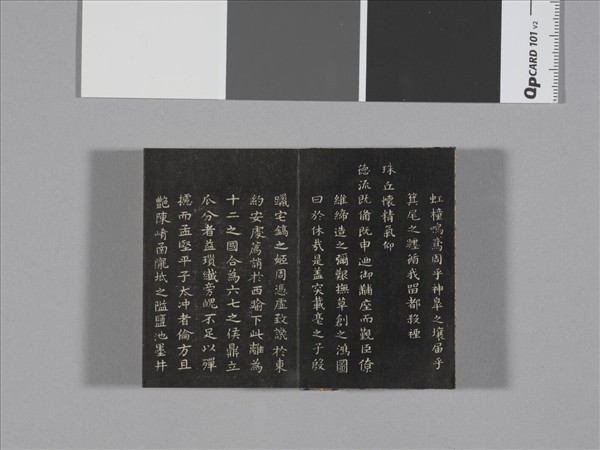 QpCARD 101 v2
虹橦鳴鳶周乎神皋之壤届乎
箕尾之裡循我留都
珠丘懷精氣仰
德流既備既申迪御黼座而觀臣僚
維締造之彌艱撫草創之鴻圖
曰於休哉是蓋突載亳之子殷
躐宅鎬之姬周憑虛致譏於東
約安處篤誚於西喻下此離為
十二之國合為六七之侯鼎立
瓜分者益瑣纖旁魄不足以殫
攄而孟堅平子太沖者倫方且
艷陳崤函隴坻之隘鹽池墨井